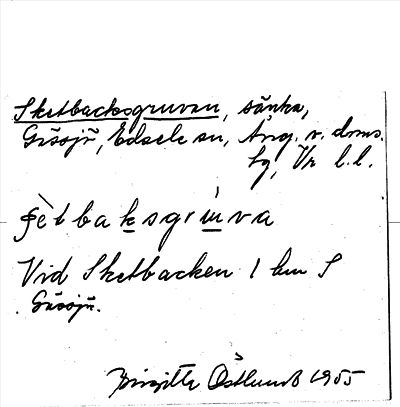 Sketbacksgruvan, sänka,
Gåssjö, Edsele sn, Ång. v. doms.
lg, Vn l.l.
ʃètbaksgrùva
Vid Sketbacken 1 km S
Gåssjö.
Birgitta Östlund 1955